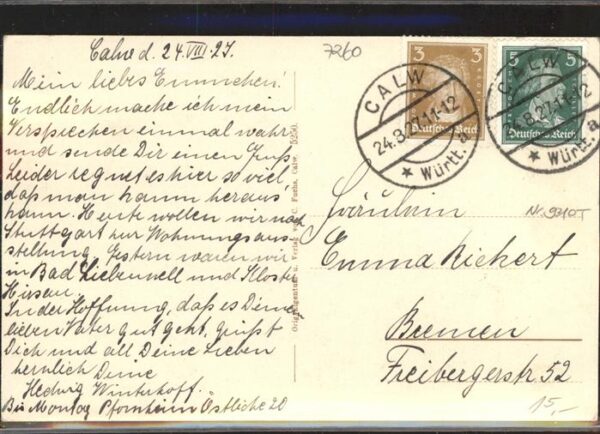 Calw d. 24.VIII.27.
Mein liebes Emmchen!
Endlich mache ich mein
Versprechen einmal wahr
und sende Dir einen Gruß.
Leider regnet es hier so viel,
daß man kaum heraus
kann. Heute wollen wir nach
Stuttgart zur Wohnungsaus-
stellung. Gestern waren wir
in Bad Liebenzell und Kloster
Hirsau.
In der Hoffnung, daß es Deinem
lieben Vater gut geht, grüßt
Dich und all Deine Lieben
herzlich Deine
Hedwig Winterhoff.
Bis Montag Pforzheim Östliche 20
Originalaufnahme u. Verlag Fuchs, Calw.
7260
3 3
Deutsches Reich
5 5
Deutsches Reich
CALW
24.8.27.11-12
★ Württ. a
CALW
.8.27.11-12
★ Württ. a
Nr. 9340T
Fräulein
Emma Richert
Bremen
Freibergerstr. 52
15,-